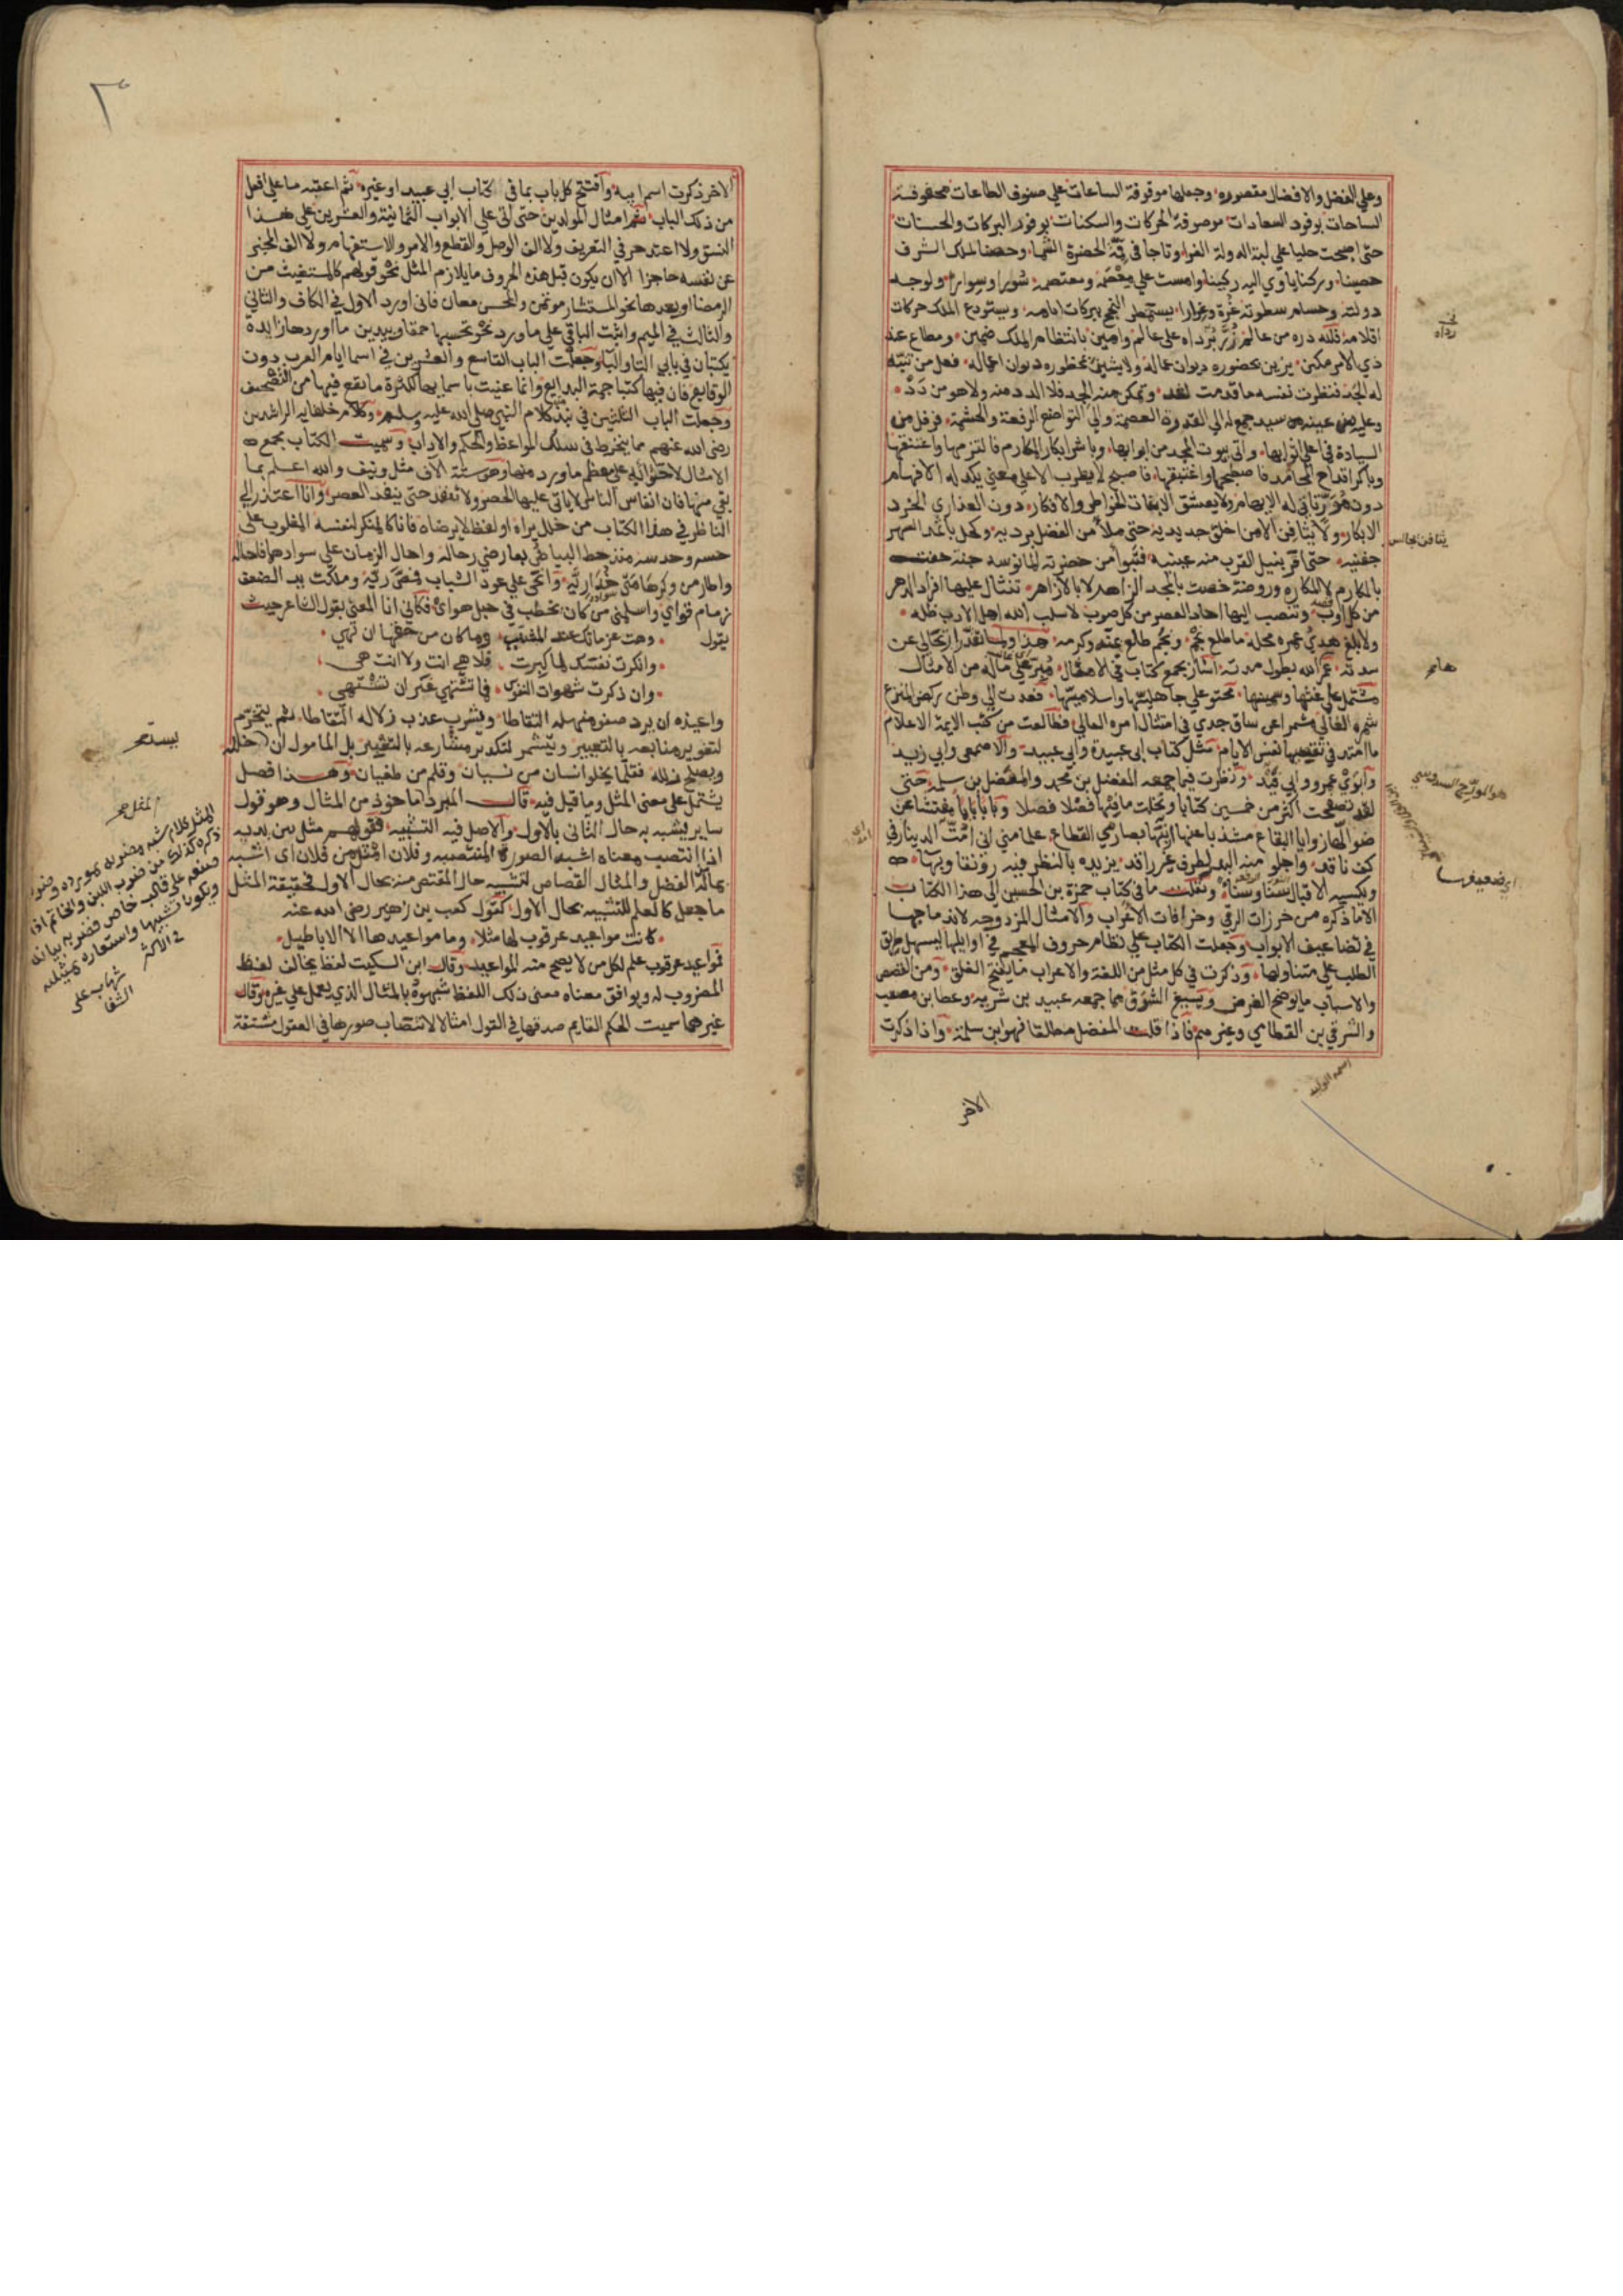 وعلى الفضل والافضال مقصورة وجعلها موقوفة الساعات على صنوف الطاعات محفوفة
الساحات بوفود السعادات موصوفة الحركات والسكنات بوفور البركات والحسنات
حتى اصبحت حليا على لبة الدولة الغرا وتاجا في قمة الحضرة الشما وحصنا لملك الشرف
حصينا وركنا ياوي اليه ركينا وامست على معصمه ومعتصمه سورا وسوارا ولوجه
دولته وحسام سطوته غرة وغرارا يستمطر النجح ببركات ايامه ويستودع الملك حركات
اقلامه فلله دره من عالم زر برداه على عالم وامين بانتظام الملك ضمين ومطاع عند
ذي الامر مكين يزين بحضوره ديوان عماله ولا يشين بمحظوره ديوان اعماله فعل من تنبه
له الجد فنظرت نفسه ما قدمت لغد وتمكن منه الجد فلا الدد منه ولا هو من دد
من سيد جمع له الى القدرة العصمة والى التواضع الرفعة والحشمة فرفل من
السيادة في اغلى اثوابها واتى بيوت المجد من ابوابها وباشر ابكار المكارم فالتزمها واعتنقها
وباكر اقداح المحامد فاصطبحها واغتبقها فاصبح لا يطرب الا على معنى يكد له الافهام
دون ولا يعشق الا بنات الخواطر والافكار دون العذارى الخرد
الابكار ولا يثافن الا من اخلق جديديه حتى ملا من الفضل برديه وكحل باثمد السهر
جفنيه حتى اقر بنيل القرب منه عينيه فتبوا من حضرته المانوسة جنة حفت
بالمكارم لا بالمكاره وروضة خصت بالمجد الزاهر لا بالازاهر تنثال عليها افراد الدهر
من كل اوب وتنصب اليها احاد العصر من كل صوب لا سلب الله اهل الادب ظله
ولا بلغ هدي عمره محله ما طلع نجم ونجم طلع بمنه وكرمه هذا ولما تقدر ارتحالي عن
سدته عمر الله بطول مدته اشار بجمع كتاب في الامثال مبر على ما له من الامثال
مشتمل على غثها وسمينها محتو على جاهليها واسلاميها فعدت الى وطني ركض المنزع
شمره الغالي مشمرا عن ساق جدي في امتثال امره العالي فطالعت من كتب الايمة الاعلام
ما امتد في تقصيه نفس الايام مثل كتاب ابي عبيدة وابي عبيد والاصمعي وابي زيد
وابوي عمرو وابي فيد ونظرت فيما جمعه المفضل بن محمد والمفضل بن سلمة حتى
لقد تصفحت اكثر من خمسين كتابا ونخلت ما فيها فصلا فصلا وبابا بابا مفتشا عن
ضوالها زوايا البقاع مشذبا عنها ابنها بصارمي القطاع علما مني اني امت الدينار في
كف ناقد واجلو منه البدر لطرف غير راقد يزيده بالنظر فيه رونقا وبها
ويكسبه الاقبال سنا وسناء ونقلت ما في كتاب حمزة بن الحسين الى هذا الكتاب
الا ما ذكره من خرزات الرقى وخرافات الاعراب والامثال المزدوجة لاندماجها
في تضاعيف الابواب وجعلت الكتاب على نظام حروف المعجم في اوايلها ليسهل طريق
الطلب على متناولها وذكرت في كل مثل من اللغة والاعراب ما يفتح الغلق ومن القصص
والاسباب ما يوضح الغرض ويسيغ الشرق مما جمعه عبيد بن شرية وعطا بن مصعب
والشرقي بن القطامي وغيرهم فاذا قلت المفضل مطلقا فهو ابن سلمة واذا ذكرت
الاخر
يثافن يجالس
هو المورج السدوسي
الاخر ذكرت اسم ابيه وافتتح كل باب بما في كتاب ابي عبيد او غيره ثم اعقبه ما على افعل
من ذلك الباب ثم امثال المولدين حتى اتي على الابواب الثمانية والعشرين على هذا
النسق ولا اعتد حرفي التعريف ولا الف الوصل والقطع والامر والاستفهام ولا الف المخبر
عن نفسه حاجزا الا ان يكون قبل هذه الحروف ما يلازم المثل نحو قولهم كالمستغيث من
الرمضا او بعدها نحو المستشار موتمن والمحسن معان فاني اورد الاول في الكاف والثاني
والثالث في الميم واثبت الباقي على ما ورد نحو تحسبها حمقا وبيدين ما اوردها زايدة
يكتبان في بابي التا والبا وجعلت الباب التاسع والعشرين في اسما ايام العرب دون
الوقايع فان فيها كتبا جمة البدايع وانما عنيت باسمايها لكثرة ما يقع فيها من التصحيف
وجعلت الباب الثلثين في نبذ من كلام النبي صلى الله عليه وسلم وكلام خلفايه الراشدين
رضي الله عنهم مما ينخرط في سلك المواعظ والحكم والاداب وسميت الكتاب مجمع
الامثال لاحتوائه على معظم ما ورد منها وهو ستة الاف مثل ونيف والله اعلم بما
بقي منها فان انفاس الناس لا ياتي عليها الحصر ولا تنفد حتى ينفد العصر وانا اعتذر الى
الناظر في هذا الكتاب من خلل يراه او لفظ لا يرضاه فانا كالمنكر لنفسه المغلوب على
حسه وحدسه منذ حط البياض بعارضي رحاله واحال الزمان على سوادهما فاحاله
واطار من وكرها مني خداريه وانحى على عود الشباب فمص ريه وملكت يد الضعف
زمام قواي واسلمني من كان يحطب في حبل هواي فكاني انا المعني بقول الشاعر حيث
يقول وهت عزماتك عند المشيب وما كان من حقها ان تهي
وانكرت نفسك لما كبرت فلا هي انت ولا انت هي
وان ذكرت شهوات النفوس فما تشتهي غير ان تشتهي
واعيذه ان يرد صفو منهله التقاطا ويشرب عذب زلاله التقاطا ثم يتحزم
لتغوير منابعه بالتعيير ويتشمر لتكدير مشارعه بالتغيير بل المامول ان خلله
ويصلح زلله فقلما يخلو انسان من نسيان وقلم من طغيان وهذا فصل
يشتمل على معنى المثل وما قيل فيه قال المبرد اماخوذ من المثال وهو قول
ساير يشبه به حال الثاني بالاول والاصل فيه التشبيه فقولهم مثل بين يديه
اذا انتصب معناه اشبه الصورة المنتصبة وفلان امثل من فلان اي اشبه
بماله الفضل والمثال القصاص لتشبيه حال المقتص منه بحال الاول فحقيقة المثل
ما جعل كالعلم للتشبيه بحال الاول كقول كعب بن زهير رضي الله عنه
كانت مواعيد عرقوب لها مثلا وما مواعيدها الا الاباطيل
فمواعيد عرقوب علم لكل من لا يصح منه المواعيد وقال ابن السكيت لفظ يخالف لفظ
المضروب له ويوافق معناه معنى ذلك اللفظ شبهوه بالمثال الذي يعمل علي غيره وقال
غيرهما سميت الحكم القايم صدقها في القول امثالا لانتصاب صورها في العقول مشتقة